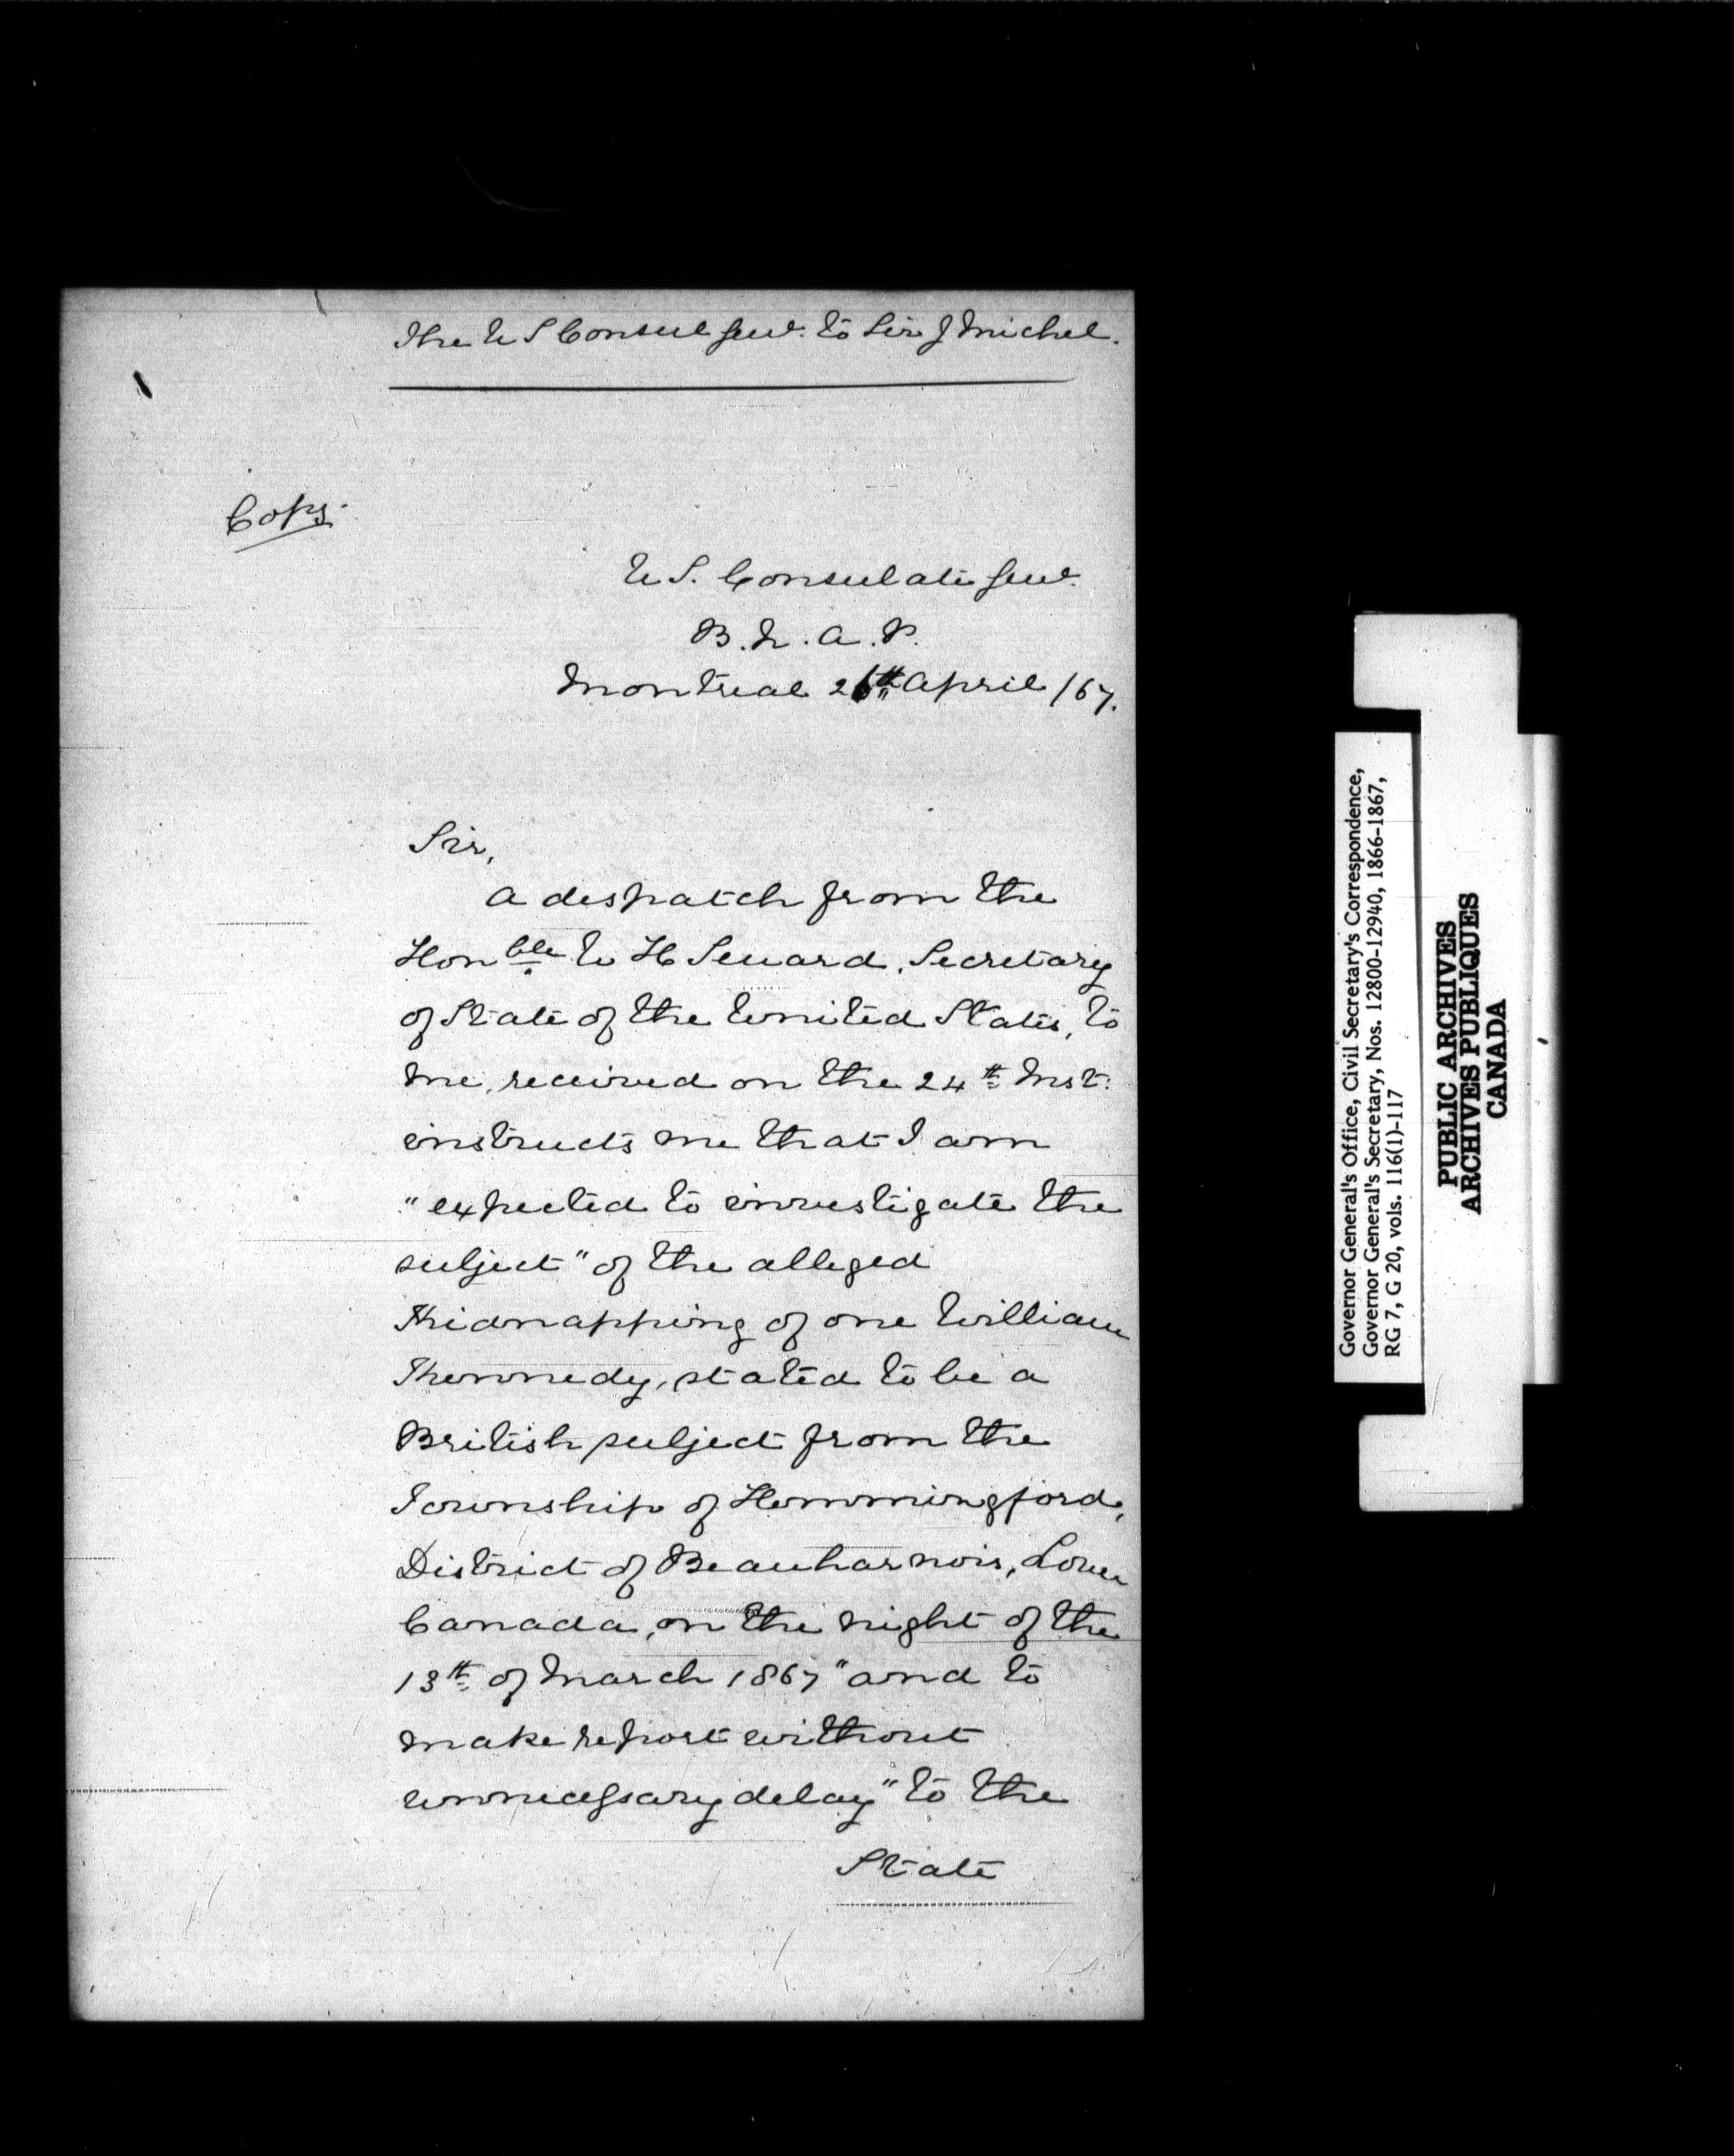 The U S Consul Genl. to Sir J Michel.
Copy.
U S. Consulate Genl.
B. N. A. P.
Montreal 26th April /67.
Sir,
A despatch from the
Honble W H Seward, Secretary
of State of the United States, to
me, received on the 24th Inst.
instructs me that I am
"expected to investigate the
subject" of the alleged
Kidnapping of one William
Kennedy, stated to be a
British subject from the
Township of Hemmingford,
District of Beauharnois, Lower
Canada, on the night of the
13th of March 1867 "and to
make report without
unnecessary delay" to the
State
Governor General's Office, Civil Secretary's Correspondence,
Governor General's Secretary, Nos. 12800-12940, 1866-1867,
RG 7, G 20, vols. 116(1)-117
PUBLIC ARCHIVES
ARCHIVES PUBLIQUES
CANADA